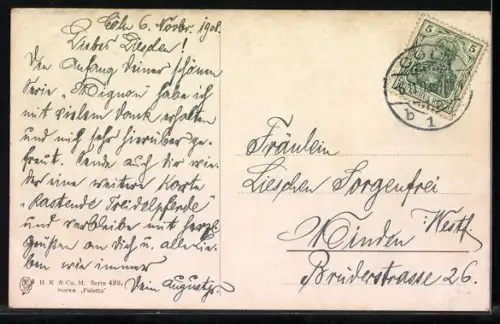 Cöln 6. Novbr. 1908.
Liebes Lieschen!
Den Anfang Deiner schönen
Serie "Mignon" habe ich
mit vielem Dank erhalten
und mich sehr hierüber ge-
freut. Sende auch dir wie-
der eine weitere Karte
"Rastende Treidelpferde"
und verbleibe mit herzl.
Grüßen an Dich u. alle Lie-
ben wie immer
Dein
H. K. & Co., M. Serie 499.
Marke "Paletta"
5 5
CÖLN
b 1
Fräulein
Lieschen Sorgenfrei
Minden Westf.
Brüderstrasse 26.